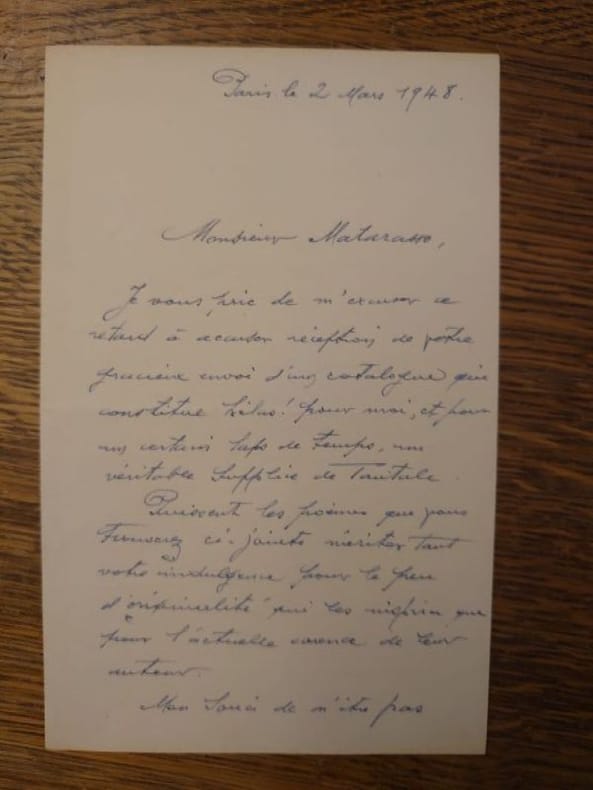 Paris le 2 Mars 1948.
Monsieur Matarasso,
Je vous prie de m'excuser ce
retard à accuser réception de votre
gracieux envoi d'un catalogue qui
constitue hélas! pour moi, et pour
un certain laps de temps, un
véritable supplice de Tantale.
Puissent les poèmes que vous
trouverez ci-joints mériter tant
votre indulgence pour le peu
d'originalité qui les inspire que
pour l'actuelle carence de leur
auteur.
Mon souci de n'être pas